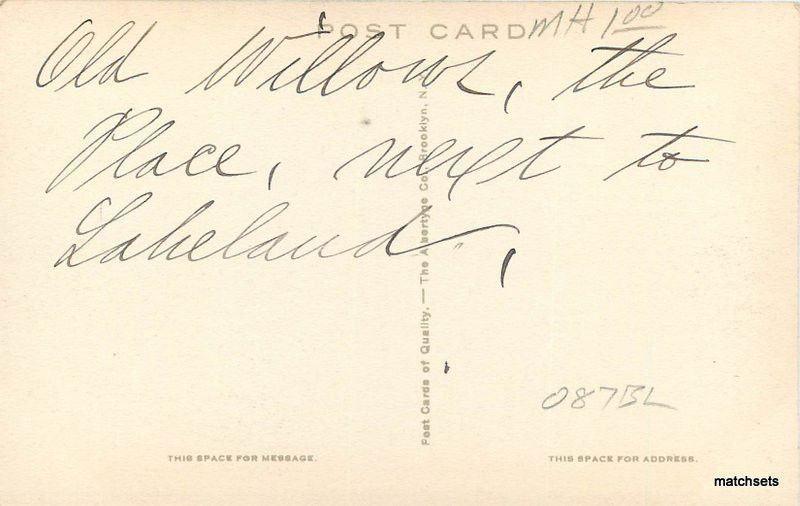 POST CARD
MH 1.00
Old Willows, the
Place, next to
Lakeland,
Post Cards of Quality. — The Albertype Co., Brooklyn, N.Y.
087BL
THIS SPACE FOR MESSAGE.
THIS SPACE FOR ADDRESS.
matchsets